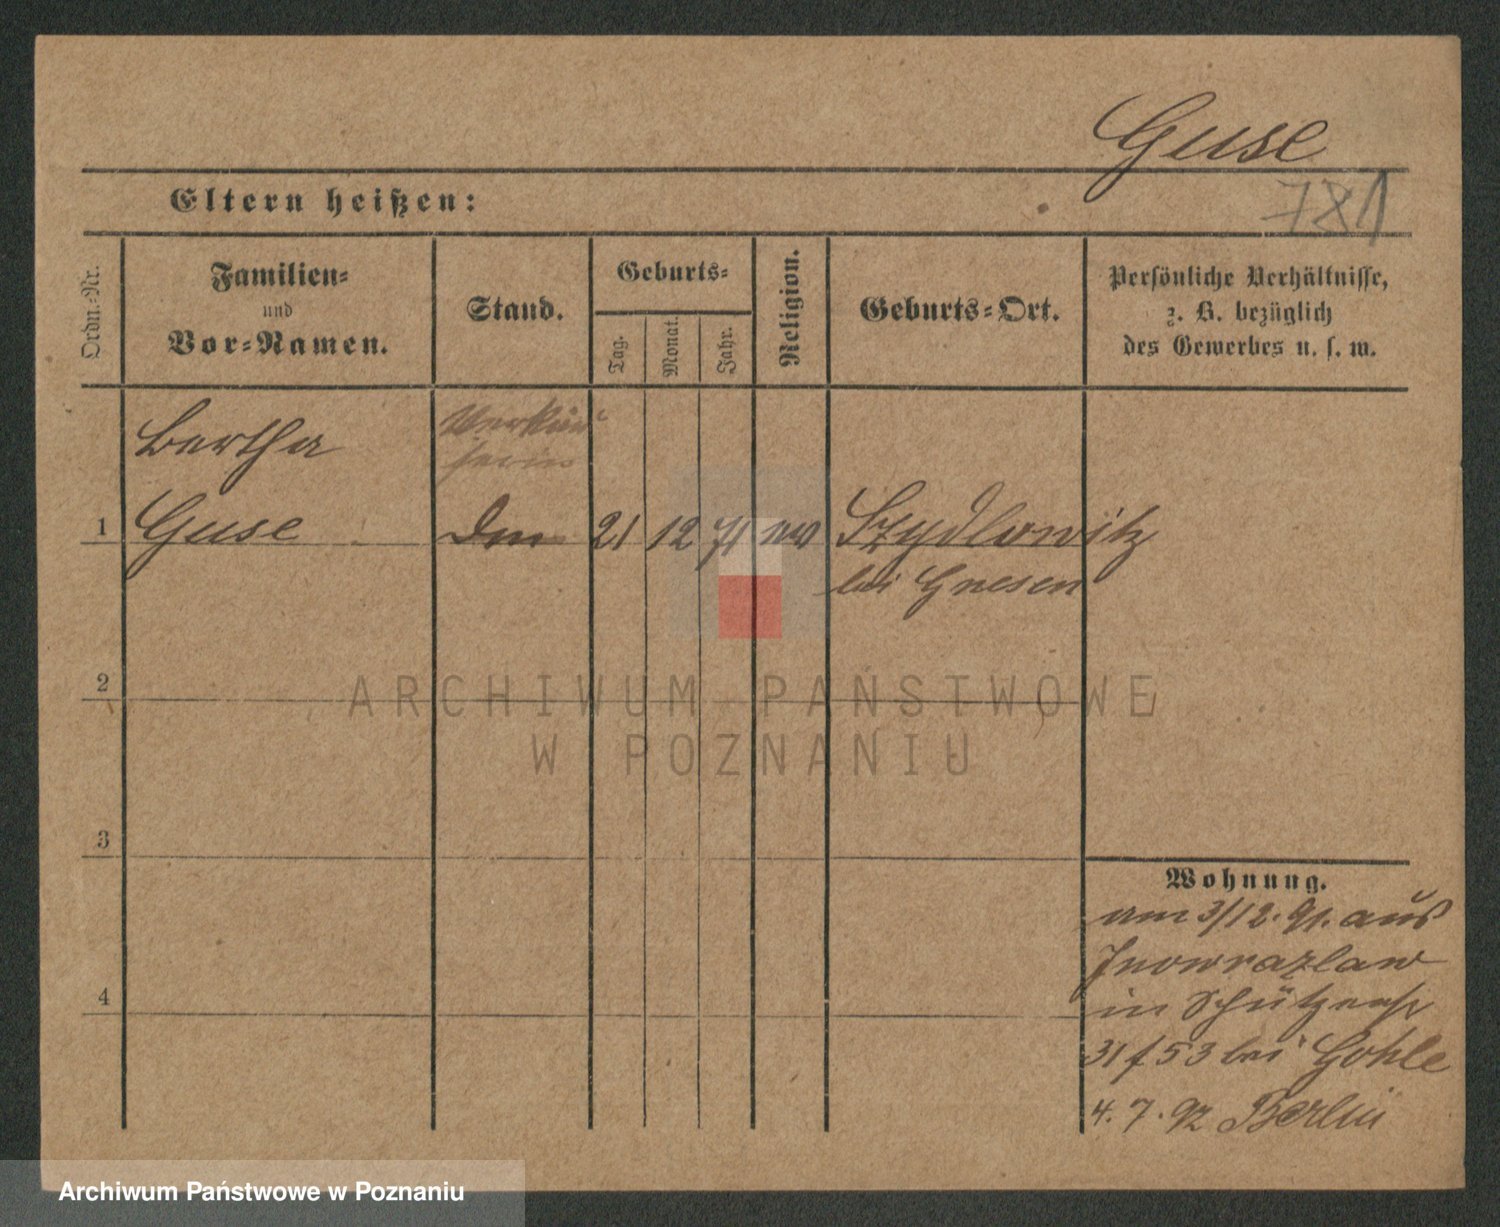 Guse
781
Eltern heißen:
Ordn.-Nr.
Familien-
und
Vor-Namen.
Stand.
Geburts-
Tag.
Monat.
Jahr.
Religion.
Geburts-Ort.
Persönliche Verhältnisse,
z. B. bezüglich
des Gewerbes u. s. w.
Bertha
1 Guse 21 12 71 ev Szydlowitz
bei Gnesen
2
ARCHIWUM PAŃSTWOWE
W POZNANIU
3
Wohnung.
am 3/12. 91. aus
Inowrazlaw
in Schützenstr
4
31 / 53 bei Gohle
4. 7. 92 Berlin
Archiwum Państwowe w Poznaniu